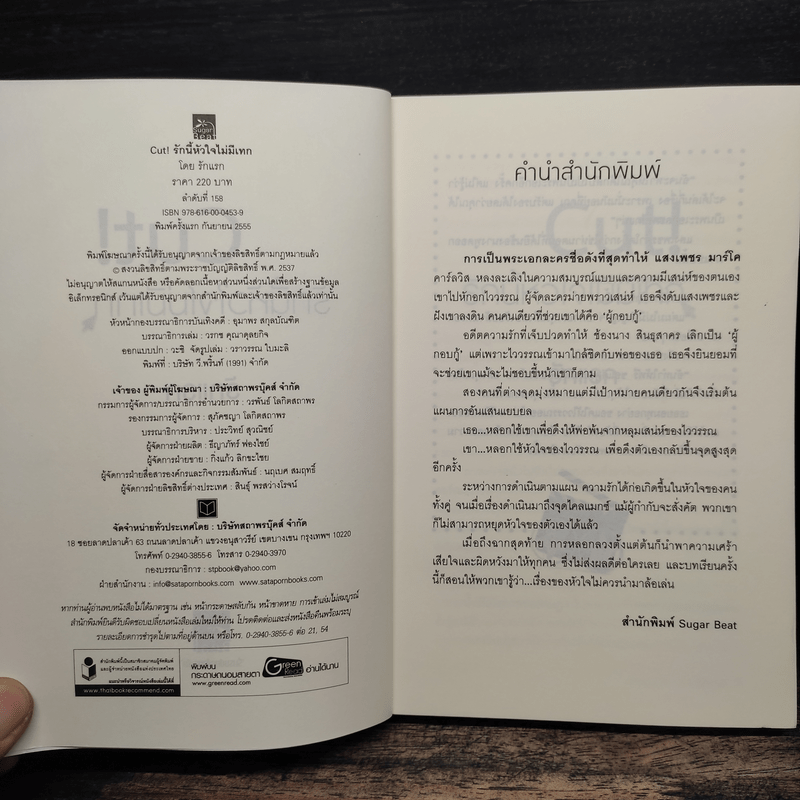 Sugar
Beat
Cut! รักนี้หัวใจไม่มีเทก
โดย รักแรก
ราคา 220 บาท
ลำดับที่ 158
ISBN 978-616-00-0453-9
พิมพ์ครั้งแรก กันยายน 2555
พิมพ์โฆษณาครั้งนี้ได้รับอนุญาตจากเจ้าของลิขสิทธิ์ตามกฎหมายแล้ว
© สงวนลิขสิทธิ์ตามพระราชบัญญัติลิขสิทธิ์ พ.ศ. 2537
ไม่อนุญาตให้สแกนหนังสือ หรือคัดลอกเนื้อหาส่วนหนึ่งส่วนใดเพื่อสร้างฐานข้อมูล
อิเล็กทรอนิกส์ เว้นแต่ได้รับอนุญาตจากสำนักพิมพ์และเจ้าของลิขสิทธิ์แล้วเท่านั้น
หัวหน้ากองบรรณาธิการบันเทิงคดี : อุมาพร สกุลบัณฑิต
บรรณาธิการเล่ม : วรกช คุณาดุลยกิจ
ออกแบบปก : วะชิ จัดรูปเล่ม : วราวรรณ ใบมะลิ
พิมพ์ที่ : บริษัท วี.พริ้นท์ (1991) จำกัด
เจ้าของ ผู้พิมพ์ผู้โฆษณา : บริษัทสถาพรบุ๊คส์ จำกัด
กรรมการผู้จัดการ/บรรณาธิการอำนวยการ : วรพันธ์ โลกิตสถาพร
รองกรรมการผู้จัดการ : สุภัคชญา โลกิตสถาพร
บรรณาธิการบริหาร : ประวิทย์ สุวณิชย์
ผู้จัดการฝ่ายผลิต : ธีญาภัทร์ ฟองไซย์
ผู้จัดการฝ่ายขาย : กิ่งแก้ว ลิกขะไชย
ผู้จัดการฝ่ายสื่อสารองค์กรและกิจกรรมสัมพันธ์ : นฤเบศ สมฤทธิ์
ผู้จัดการฝ่ายลิขสิทธิ์ต่างประเทศ : สินธุ์ พรสว่างโรจน์
จัดจำหน่ายทั่วประเทศโดย : บริษัทสถาพรบุ๊คส์ จำกัด
18 ซอยลาดปลาเค้า 63 ถนนลาดปลาเค้า แขวงอนุสาวรีย์ เขตบางเขน กรุงเทพฯ 10220
โทรศัพท์ 0-2940-3855-6 โทรสาร 0-2940-3970
กองบรรณาธิการ : stpbook@yahoo.com
ฝ่ายสำนักงาน : info@satapornbooks.com www.satapornbooks.com
หากท่านผู้อ่านพบหนังสือไม่ได้มาตรฐาน เช่น หน้ากระดาษสลับกัน หน้าขาดหาย การเข้าเล่มไม่สมบูรณ์
สำนักพิมพ์ยินดีรับผิดชอบเปลี่ยนหนังสือเล่มใหม่ให้ท่าน โปรดติดต่อและส่งหนังสือคืนพร้อมระบุ
รายละเอียดการชำรุดไปตามที่อยู่ด้านบน หรือโทร. 0-2940-3855-6 ต่อ 21, 54
สำนักพิมพ์นี้เป็นสมาชิกสมาคมผู้จัดพิมพ์
และผู้จำหน่ายหนังสือแห่งประเทศไทย
แนะนำหรือวิจารณ์หนังสือเล่มนี้ได้ที่
www.thaibookrecommend.com
พิมพ์บน
กระดาษถนอมสายตา
www.greenread.com
Green
Read
อ่านได้นาน
คำนำสำนักพิมพ์
การเป็นพระเอกละครชื่อดังที่สุดทำให้ แสงเพชร มาร์โค
คาร์ลวิส หลงละเลิงในความสมบูรณ์แบบและความมีเสน่ห์ของตนเอง
เขาไปหักอกไววรรณ ผู้จัดละครม่ายพราวเสน่ห์ เธอจึงดับแสงเพชรและ
ฝังเขาลงดิน คนคนเดียวที่ช่วยเขาได้คือ ‘ผู้กอบกู้’
อดีตความรักที่เจ็บปวดทำให้ ช้องนาง สินธุสาคร เลิกเป็น ‘ผู้
กอบกู้’ แต่เพราะไววรรณเข้ามาใกล้ชิดกับพ่อของเธอ เธอจึงยินยอมที่
จะช่วยเขาแม้จะไม่ชอบขี้หน้าเขาก็ตาม
สองคนที่ต่างจุดมุ่งหมายแต่มีเป้าหมายคนเดียวกันจึงเริ่มต้น
แผนการอันแสนแยบยล
เธอ...หลอกใช้เขาเพื่อดึงให้พ่อพ้นจากหลุมเสน่ห์ของไววรรณ
เขา...หลอกใช้หัวใจของไววรรณ เพื่อดึงตัวเองกลับขึ้นจุดสูงสุด
อีกครั้ง
ระหว่างการดำเนินตามแผน ความรักได้ก่อเกิดขึ้นในหัวใจของคน
ทั้งคู่ จนเมื่อเรื่องดำเนินมาถึงจุดไคลแมกซ์ แม้ผู้กำกับจะสั่งคัต พวกเขา
ก็ไม่สามารถหยุดหัวใจของตัวเองได้แล้ว
เมื่อถึงฉากสุดท้าย การหลอกลวงตั้งแต่ต้นก็นำพาความเศร้า
เสียใจและผิดหวังมาให้ทุกคน ซึ่งไม่ส่งผลดีต่อใครเลย และบทเรียนครั้ง
นี้ก็สอนให้พวกเขารู้ว่า...เรื่องของหัวใจไม่ควรนำมาล้อเล่น
สำนักพิมพ์ Sugar Beat